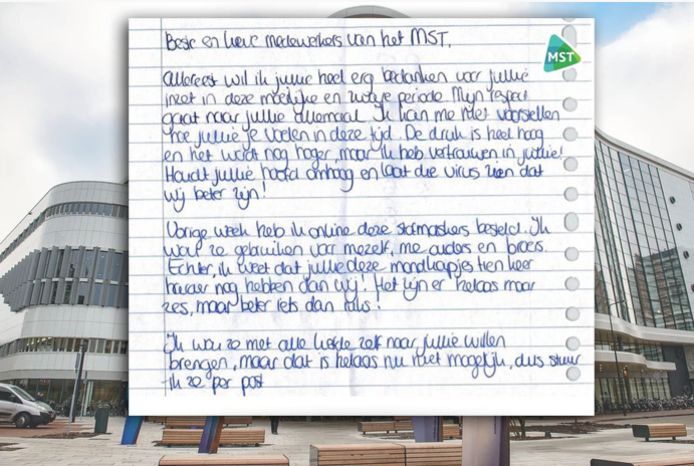 Beste en lieve medewerkers van het MST,
MST
Allereerst wil ik jullie heel erg bedanken voor jullie
inzet in deze moeilijke en zware periode. Mijn respect
gaat naar jullie allemaal. Ik kan me niet voorstellen
hoe jullie je voelen in deze tijd. De druk is heel hoog
en het wordt nog hoger, maar ik heb vertrouwen in jullie!
Houdt jullie hoofd omhoog en laat die virus zien dat
wij beter zijn!
Vorige week heb ik online deze stofmaskers besteld. Ik
wou ze gebruiken voor mezelf, me ouders en broers.
Echter, ik weet dat jullie deze mondkapjes tien keer
harder nog hebben dan wij! Het zijn er helaas maar
zes, maar beter iets dan niks!
Ik wou ze met alle liefde zelf naar jullie willen
brengen, maar dat is helaas nu niet mogelijk, dus stuur
ik ze per post